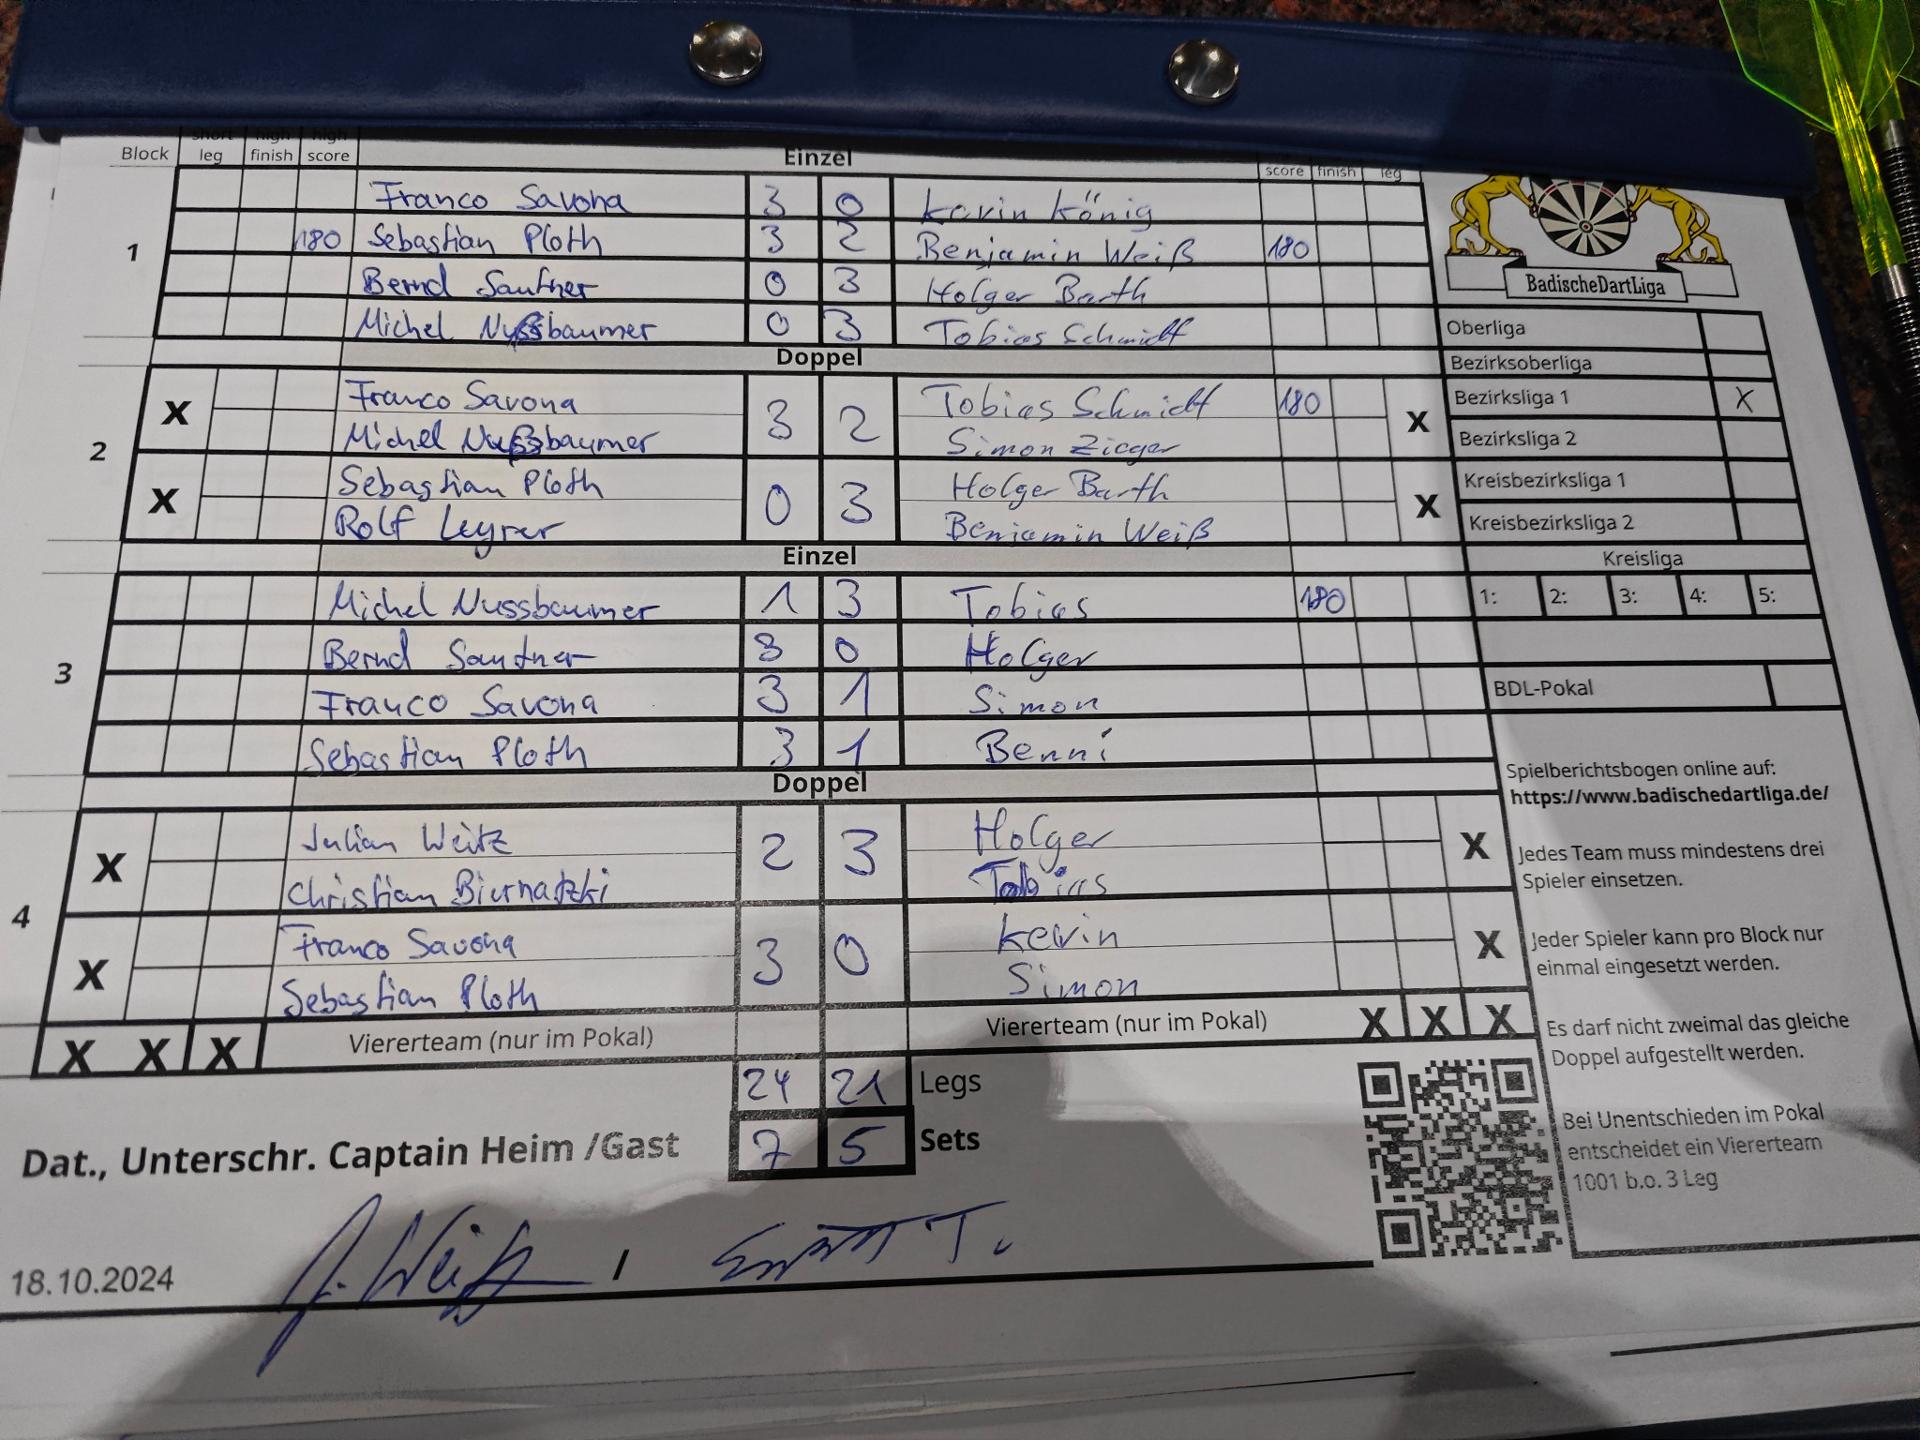 Block short leg high finish high score Einzel score finish leg
1
Franco Savona 3 0 Kevin König
180 Sebastian Ploth 3 2 Benjamin Weiß 180
Bernd Sautner 0 3 Holger Barth
Michel Nussbaumer 0 3 Tobias Schmidt
Doppel
2
X Franco Savona 3 2 Tobias Schmidt 180 X
Michel Nussbaumer Simon Zieger
X Sebastian Ploth 0 3 Holger Barth X
Rolf Leyrer Benjamin Weiß
Einzel
3
Michel Nussbaumer 1 3 Tobias 180
Bernd Sautner 3 0 Holger
Franco Savona 3 1 Simon
Sebastian Ploth 3 1 Benni
Doppel
4
X Julian Weitz 2 3 Holger X
Christian Biernatzki Tobias
X Franco Savona 3 0 Kevin X
Sebastian Ploth Simon
X X X Viererteam (nur im Pokal) Viererteam (nur im Pokal) X X X
24 21 Legs
7 5 Sets
Dat., Unterschr. Captain Heim /Gast
18.10.2024 /
BadischeDartLiga
Oberliga
Bezirksoberliga
Bezirksliga 1 X
Bezirksliga 2
Kreisbezirksliga 1
Kreisbezirksliga 2
Kreisliga
1: 2: 3: 4: 5:
BDL-Pokal
Spielberichtsbogen online auf:
https://www.badischedartliga.de/
Jedes Team muss mindestens drei
Spieler einsetzen.
Jeder Spieler kann pro Block nur
einmal eingesetzt werden.
Es darf nicht zweimal das gleiche
Doppel aufgestellt werden.
Bei Unentschieden im Pokal
entscheidet ein Viererteam
1001 b.o. 3 Leg